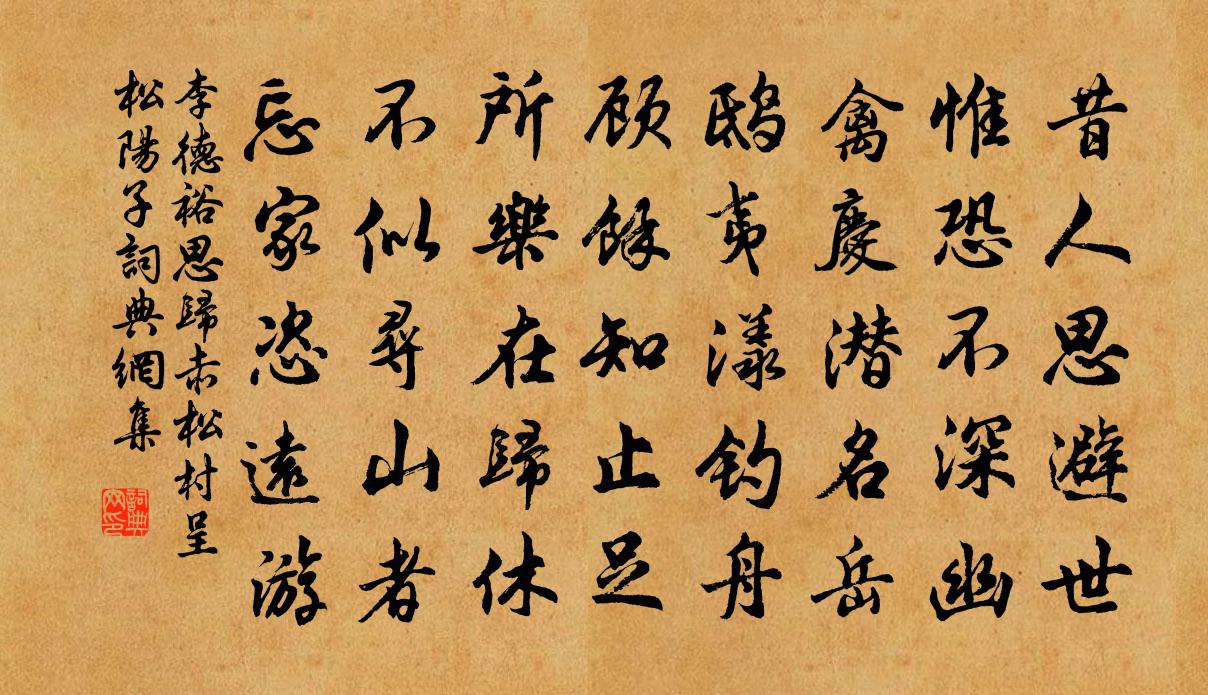 昔人思避世
惟恐不深幽
禽慶潛名岳
鴟夷漾钓舟
顾餘知止足
所樂在歸休
不似尋山者
忘家恣遠游
李德裕思歸赤松村呈
松陽子詞典網集
詞典網印